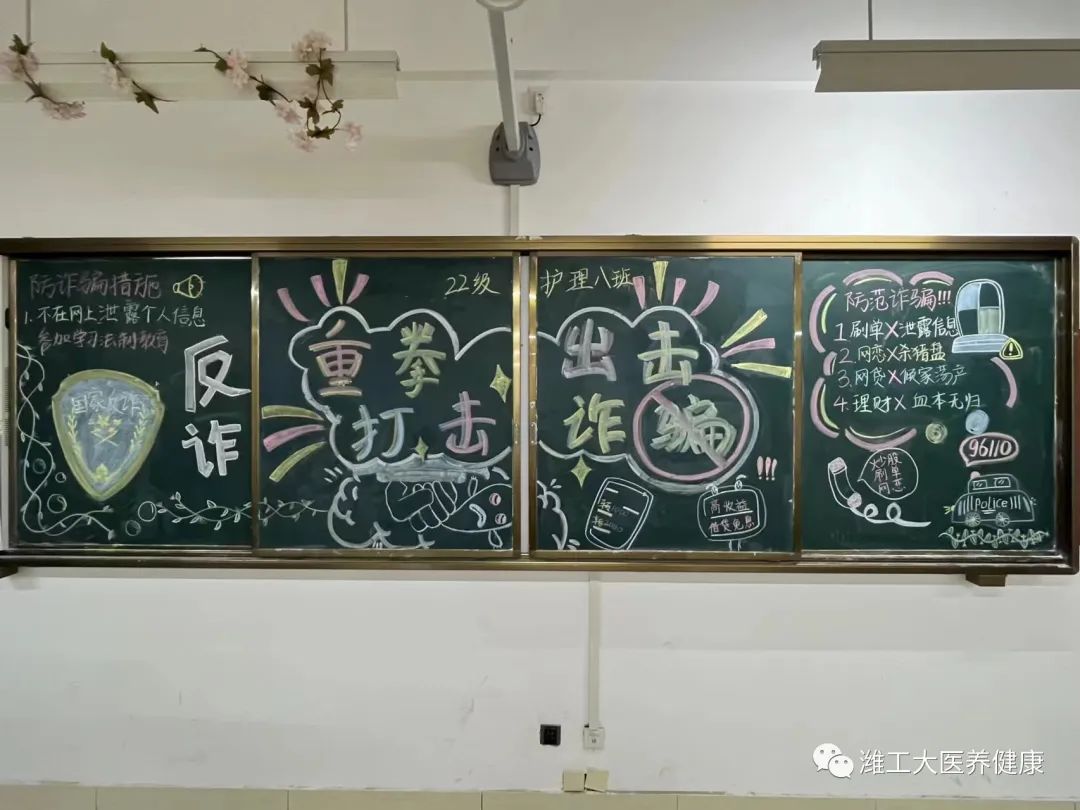 防诈骗措施
1. 不在网上泄露个人信息
参加学习法制教育
国家反诈
反诈
22级 护理八班
重拳出击
打击诈骗
!!!
高收益
借贷免息
防范诈骗!!!
1 刷单X泄露信息
2. 网恋X杀猪盘
3. 网贷X倾家荡产
4. 理财X 血本无归
炒股
刷单
网恋
96110
Police
潍工大医养健康